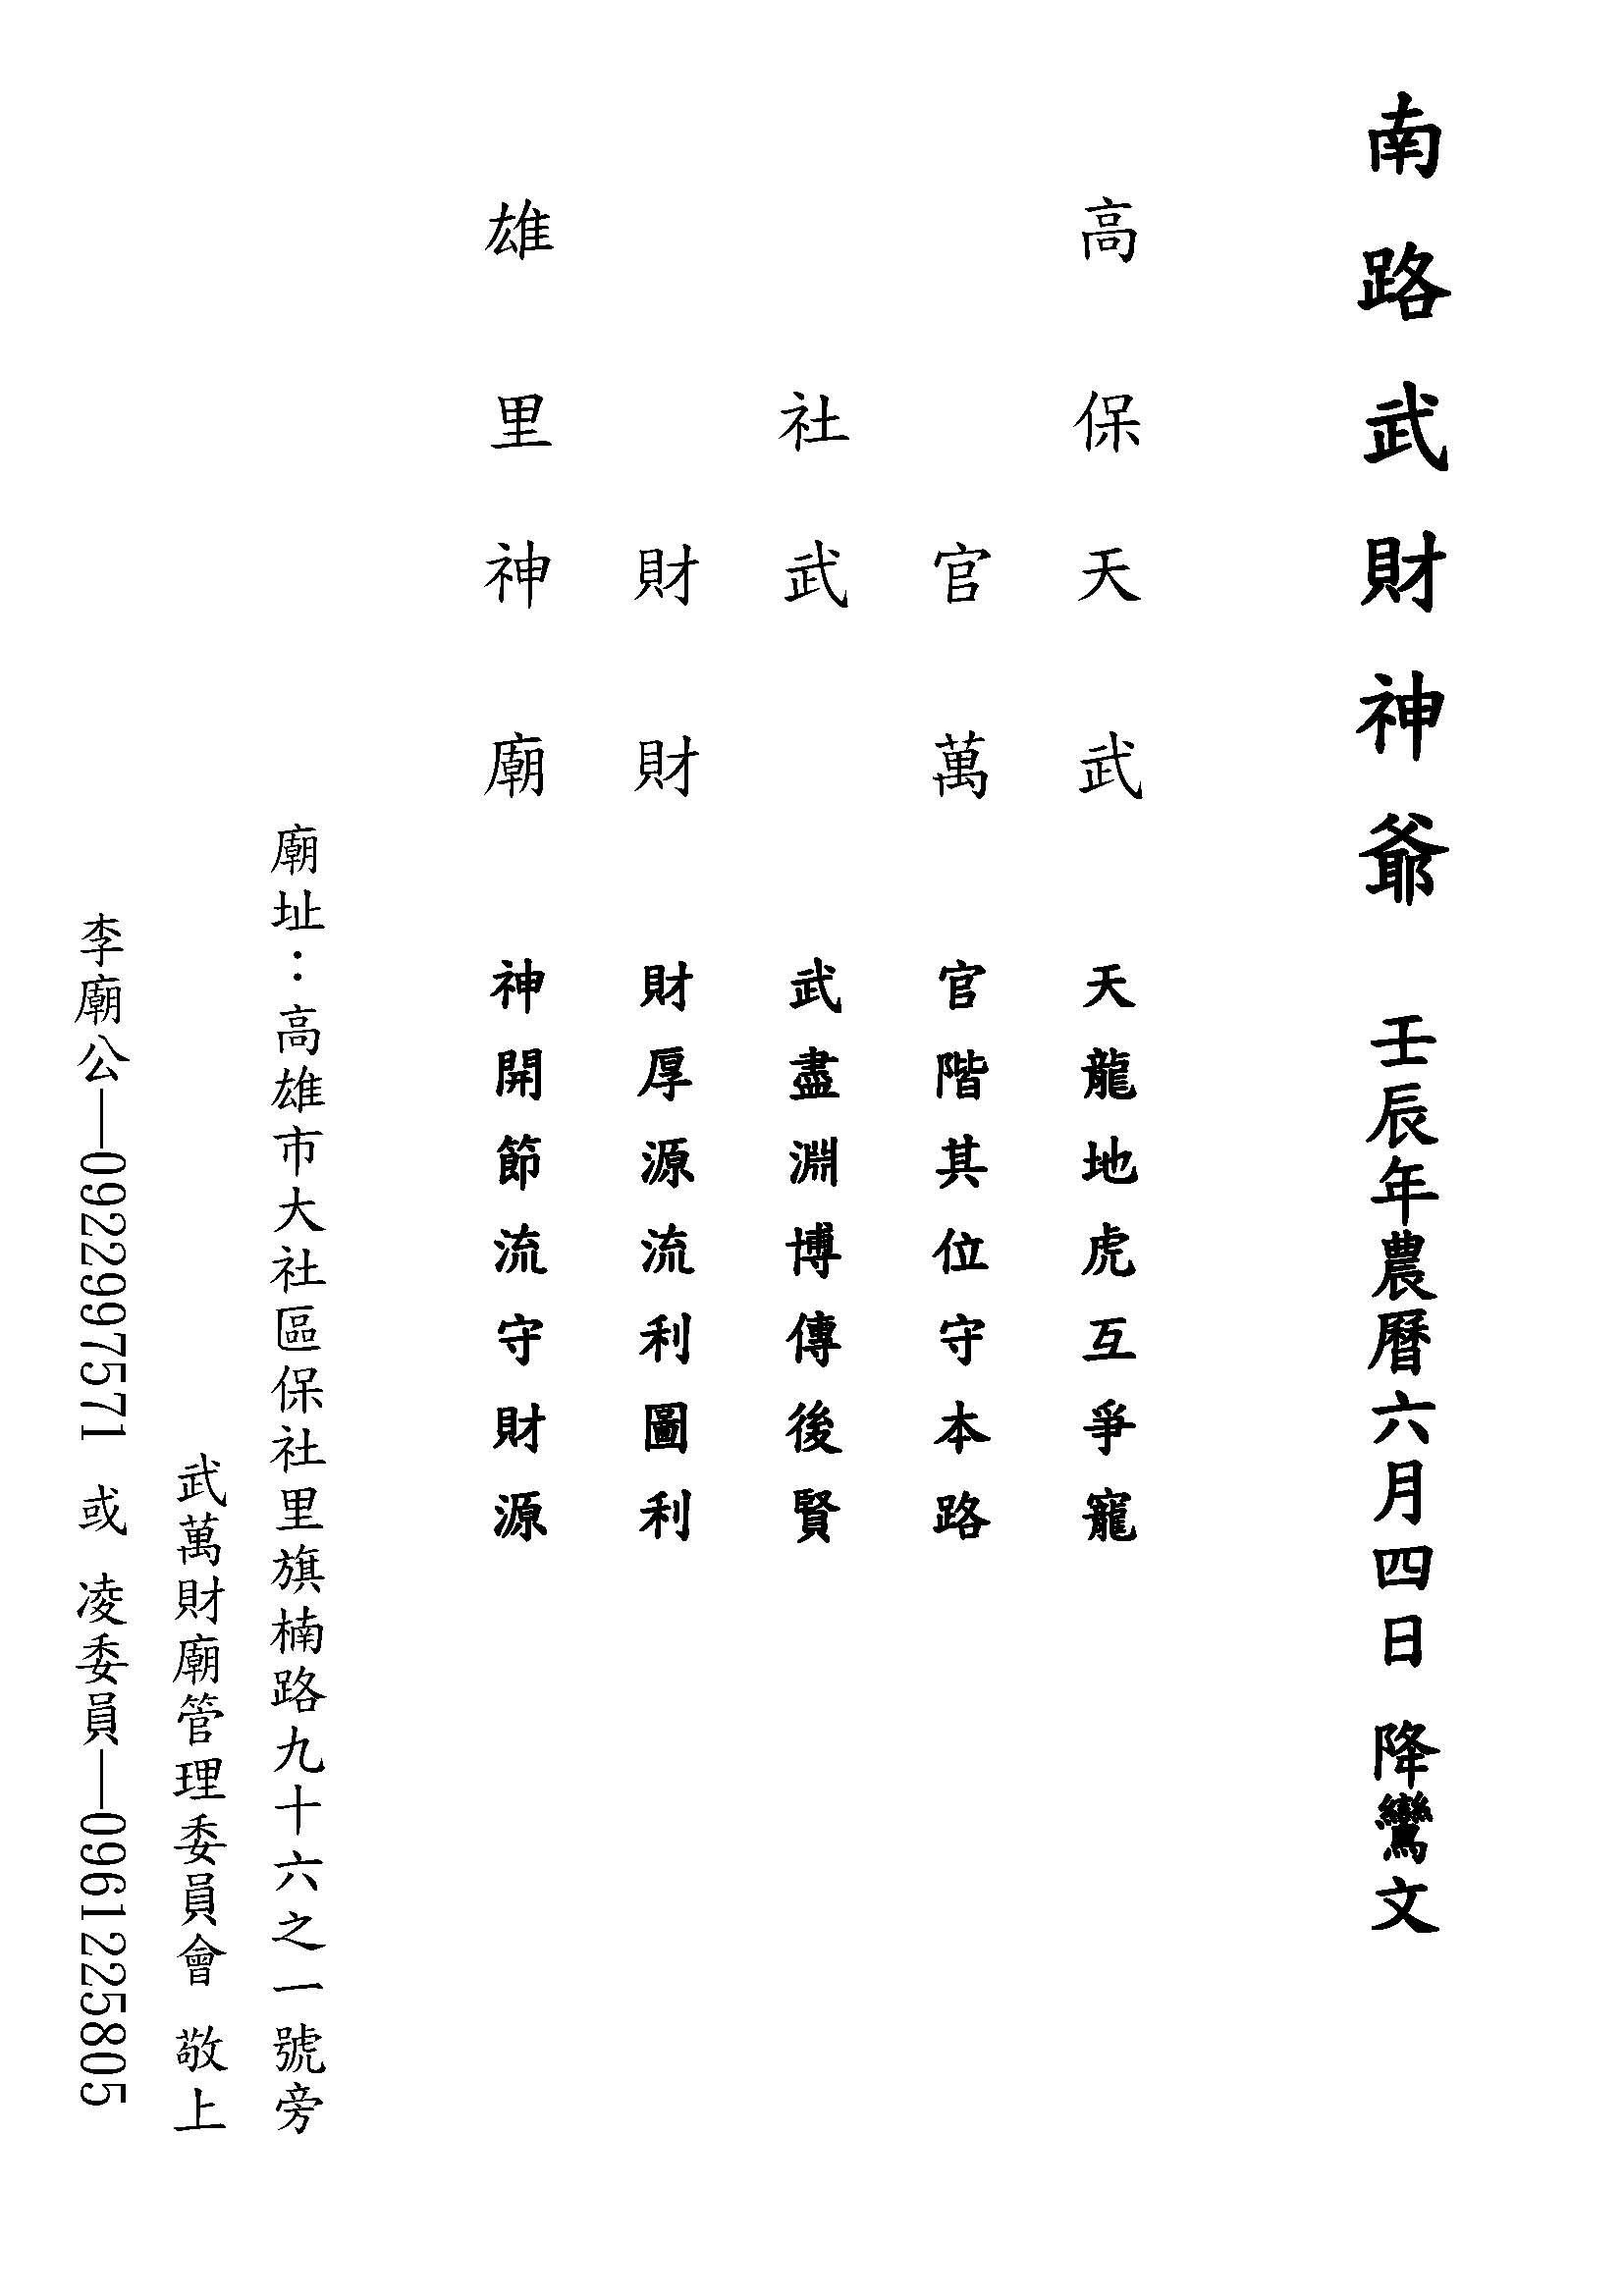 南路武財神爺 壬辰年農曆六月四日 降鸞文
高 保 天 武 天龍地虎互爭寵
官 萬 官階其位守本路
社 武 武盡淵博傳後賢
財 財 財厚源流利圖利
雄 里 神 廟 神開節流守財源
廟址：高雄市大社區保社里旗楠路九十六之一號旁
武萬財廟管理委員會 敬上
李廟公—0922997571 或 凌委員—0961225805